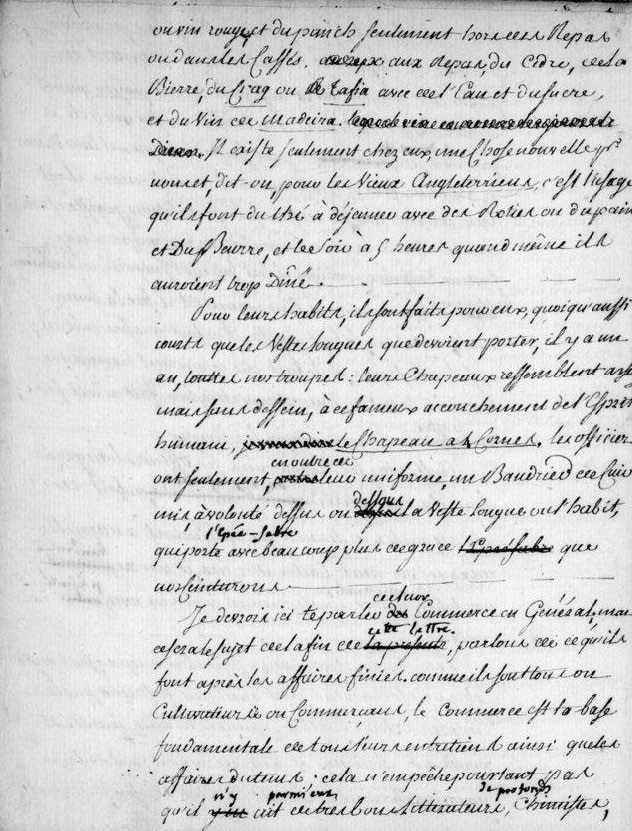 ou vin rouge, et du punch seulement hors des Repas
ou dans les Caffés. aux Repas, du Cidre, de la
Bierre, du Grog ou Tafia avec de l'Eau et du sucre,
et du vin de Madeira.
Il existe seulement chez eux, une Chose nouvelle pr.
nous et, dit-on, pour les Vieux Angleterriens, c'est l'usage
qu'ils font du thé à déjeuner avec des Roties ou du pain
et Du Beurre, et le Soir à 5 heures quand même ils
auroient trop Dîné.
Pour leurs habits, ils sont faits pour eux, quoiqu'aussi
courts que les Vestes longues que devroient porter, il y a un
an, touttes nos troupes : leurs Chapeaux ressemblent assez
mais sans dessein, à ce fameux accouchement de l'Esprit
humain, le Chapeau à 4 Cornes. les officiers
en outre de
ont seulement, leur uniforme, un Baudrier de Cuir
dessous
mis, à volonté dessus ou la Veste longue ou l'habit,
l'Epée-Sabre
qui porte avec beaucoup plus de grace l'Epée sabre que
nos Ceinturons
de leur
Je devrois ici te parler du Commerce en Général, mais
cette lettre.
ce sera le sujet de la fin de la présente, parlons de ce qu'ils
font après les affaires finies. comme ils sont tous ou
Cultivateurs ou Commerçans, le Commerce est la base
fondamentale de tous leurs entretiens ainsi que les
affaires du tems : cela n'empêche pourtant pas
n'y parmi eux de profonds
qu'il y en ait de tres bons Littérateurs, Chimistes,